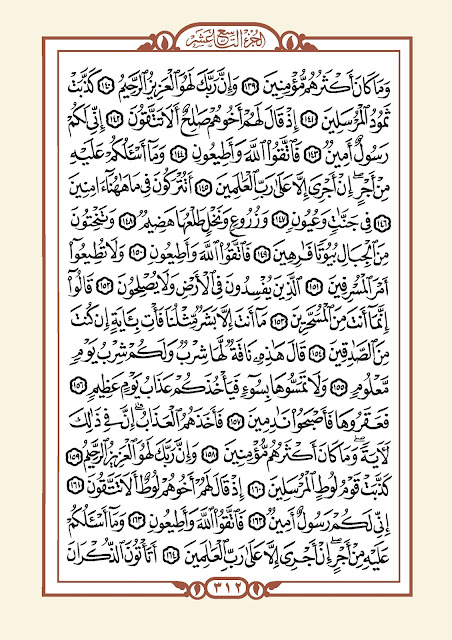 الجزء التاسع عشر
وَمَا كَانَ أَكْثَرُهُم مُّؤْمِنِينَ ١٣٩ وَإِنَّ رَبَّكَ لَهُوَ اَ۬لْعَزِيزُ اُ۬لرَّحِيمُ ١٤٠ كَذَّبَتْ
ثَمُودُ اُ۬لْمُرْسَلِينَ ١٤١ إِذْ قَالَ لَهُمْ أَخُوهُمْ صَٰلِحٌ أَلَا تَتَّقُونَ ١٤٢ إِنِّي لَكُمْ
رَسُولٌ أَمِينٌ ١٤٣ فَاتَّقُواْ اُ۬للَّهَ وَأَطِيعُونِ ١٤٤ وَمَا أَسْـَٔلُكُمْ عَلَيْهِ
مِنْ أَجْرٍ إِنْ أَجْرِيَ إِلَّا عَلَىٰ رَبِّ اِ۬لْعَٰلَمِينَ ١٤٥ أَتُتْرَكُونَ فِي مَا هَٰهُنَا ءَامِنِينَ
١٤٦ فِي جَنَّٰتٍ وَعُيُونٍ ١٤٧ وَزُرُوعٍ وَنَخْلٍ طَلْعُهَا هَضِيمٌ ١٤٨ وَتَنْحِتُونَ
مِنَ اَ۬لْجِبَالِ بُيُوتًا فَرِهِينَ ١٤٩ فَاتَّقُواْ اُ۬للَّهَ وَأَطِيعُونِ ١٥٠ وَلَا تُطِيعُواْ
أَمْرَ اَ۬لْمُسْرِفِينَ ١٥١ اَ۬لَّذِينَ يُفْسِدُونَ فِي اِ۬لْأَرْضِ وَلَا يُصْلِحُونَ ١٥٢ قَالُواْ
إِنَّمَا أَنتَ مِنَ اَ۬لْمُسَحَّرِينَ ١٥٣ مَا أَنتَ إِلَّا بَشَرٌ مِّثْلُنَا فَأْتِ بِـَٔايَةٍ إِن كُنتَ
مِنَ اَ۬لصَّٰدِقِينَ ١٥٤ قَالَ هَٰذِهِ نَاقَةٌ لَّهَا شِرْبٌ وَلَكُمْ شِرْبُ يَوْمٍ
مَّعْلُومٍ ١٥٥ وَلَا تَمَسُّوهَا بِسُوءٍ فَيَأْخُذَكُمْ عَذَابُ يَوْمٍ عَظِيمٍ ١٥٦
فَعَقَرُوهَا فَأَصْبَحُواْ نَٰدِمِينَ ١٥٧ فَأَخَذَهُمُ اُ۬لْعَذَابُ إِنَّ فِي ذَٰلِكَ
لَأٓيَةً وَمَا كَانَ أَكْثَرُهُم مُّؤْمِنِينَ ١٥٨ وَإِنَّ رَبَّكَ لَهُوَ اَ۬لْعَزِيزُ اُ۬لرَّحِيمُ ١٥٩
كَذَّبَتْ قَوْمُ لُوطٍ اِ۬لْمُرْسَلِينَ ١٦٠ إِذْ قَالَ لَهُمْ أَخُوهُمْ لُوطٌ أَلَا تَتَّقُونَ ١٦١
إِنِّي لَكُمْ رَسُولٌ أَمِينٌ ١٦٢ فَاتَّقُواْ اُ۬للَّهَ وَأَطِيعُونِ ١٦٣ وَمَا أَسْـَٔلُكُمْ
عَلَيْهِ مِنْ أَجْرٍ إِنْ أَجْرِيَ إِلَّا عَلَىٰ رَبِّ اِ۬لْعَٰلَمِينَ ١٦٤ أَتَأْتُونَ اَ۬لذُّكْرَانَ
٣١٢